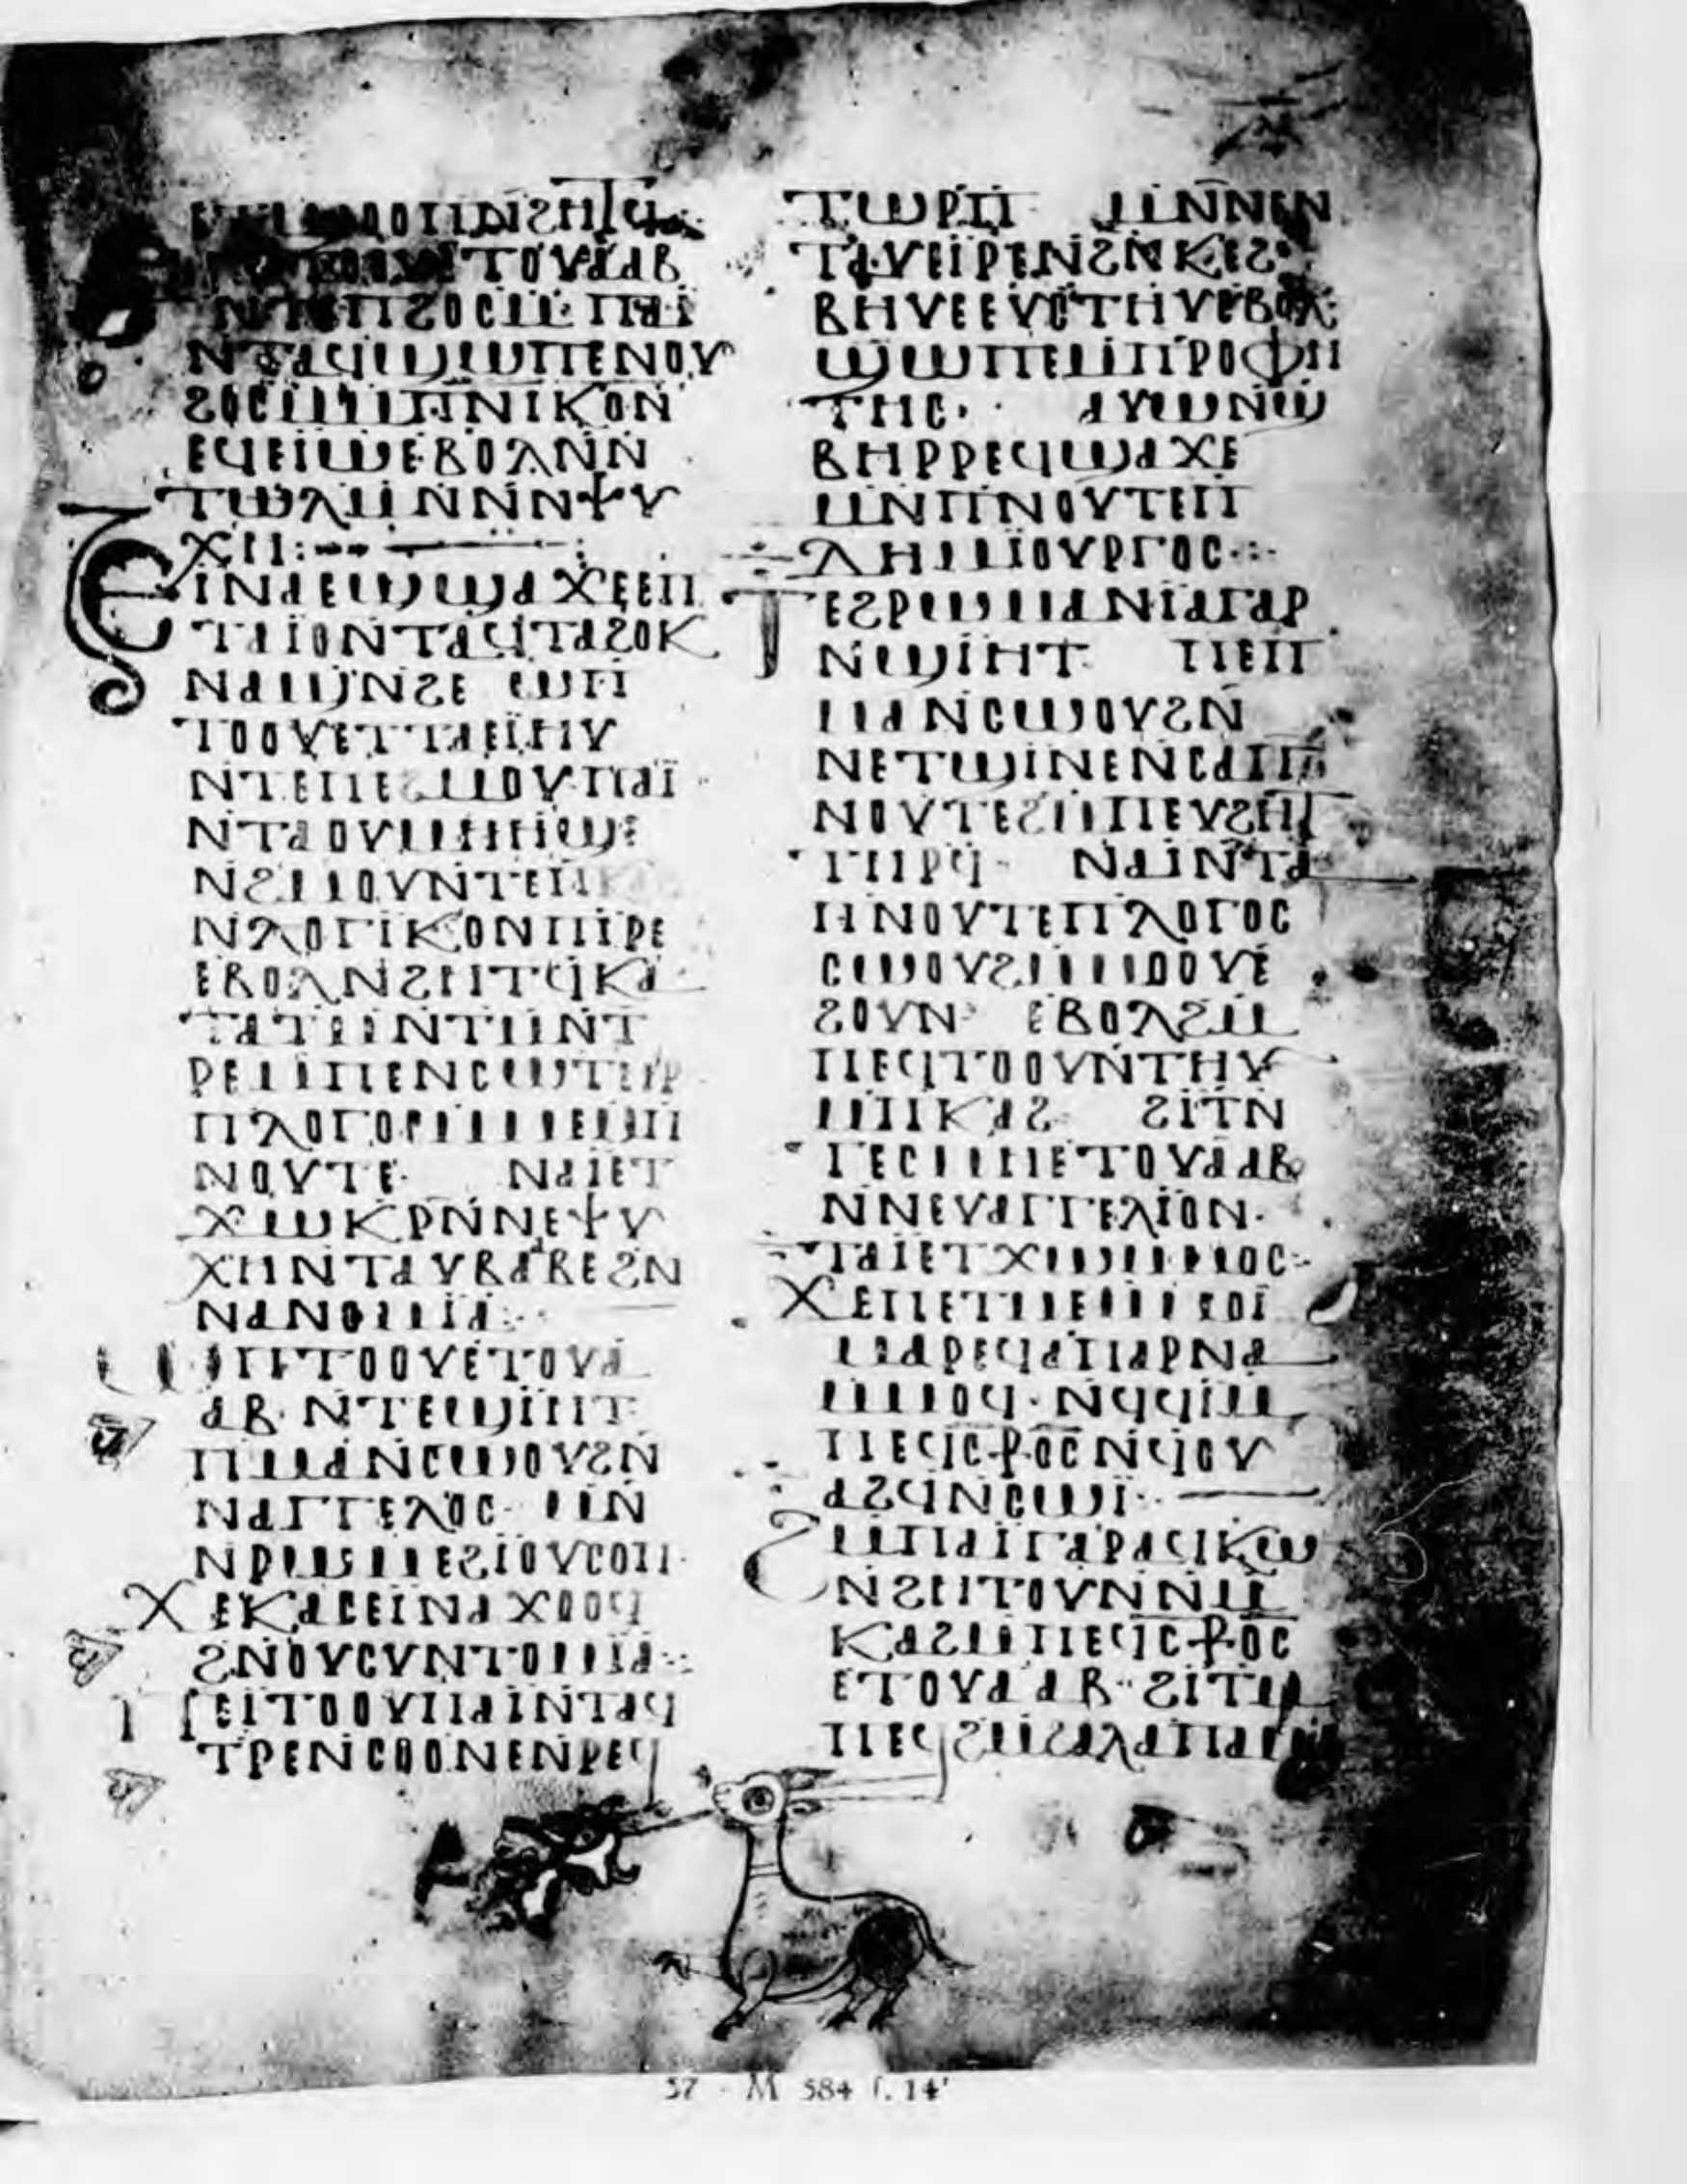 ⲉⲧⲟⲩⲁⲁⲃ
ⲙⲡϩⲟⲥⲙ· ⲡⲁⲓ̈
ⲛⲧⲁϥϣⲱⲡⲉⲛⲟⲩ
ϩⲟⲥⲙⲙⲡⲛⲓⲕⲟⲛ
ⲉϥⲉⲓⲱⲉⲃⲟⲗⲛⲛ
ⲧⲱⲗⲙⲛⲛⲛⲯⲩ
ⲭⲏ:
ⲉⲓⲛⲁⲉϣϣⲁϫⲉⲉⲡ
ⲧⲁⲓⲟⲛⲧⲁϥⲧⲁϩⲟⲕ
ⲛⲁϣⲛϩⲉ ⲱⲡ
ⲧⲟⲟⲩⲉⲧⲧⲁⲉⲓⲏⲩ
ⲛⲧⲉⲡⲉϩⲙⲟⲩ·ⲡⲁⲓ̈
ⲛⲧⲁⲟⲩⲙⲏⲏϣⲉ
ⲛϩⲙⲟⲩⲛⲧⲉⲓ
ⲛⲗⲟⲅⲓⲕⲟⲛⲡⲓⲣⲉ
ⲉⲃⲟⲗⲛϩⲏⲧϥⲕⲁ
ⲧⲁⲧⲙⲛⲧⲙⲛⲧ
ⲣⲉⲙⲡⲉⲛⲥⲱⲧⲏⲣ
ⲡⲗⲟⲅⲟⲥⲙⲙⲉⲙⲡ
ⲛⲟⲩⲧⲉ· ⲛⲁⲓⲉⲧ
ϫⲱⲕⲣⲛⲛⲉⲯⲩ
ⲭⲏⲛⲧⲁⲩⲃⲁⲃⲉϩⲛ
ⲛⲁⲛⲟⲙⲓⲁ:
ⲱⲡⲧⲟⲟⲩⲉⲧⲟⲩⲁ
ⲁⲃ· ⲛⲧⲉϣⲓⲏⲧ
ⲡⲙⲁⲛⲥⲱⲟⲩϩⲛ
ⲛⲁⲅⲅⲉⲗⲟⲥ· ⲙⲛ
ⲛⲣⲱⲙⲉϩⲓⲟⲩⲥⲟⲡ·
ϫⲉⲕⲁⲥⲉⲓⲛⲁϫⲟⲟϥ
ϩⲛⲟⲩⲥⲩⲛⲧⲟⲙⲓⲁ:
ⲡⲉⲓⲧⲟⲟⲩⲡⲁⲓⲛⲧⲁϥ
ⲧⲣⲉⲛⲥⲟⲟⲩⲛⲉⲛⲣⲉϥ
ⲧⲱⲣⲡ ⲙⲛⲛⲉⲛ
ⲧⲁⲩⲉⲓⲣⲉⲛϩⲛⲕⲉϩ
ⲃⲏⲩⲉⲉⲩϭⲧⲏⲩⲉⲃⲟⲗ:
ϣⲱⲡⲉⲙⲡⲣⲟⲫⲏ
ⲧⲏⲥ· ⲁⲩⲱⲛϣ
ⲃⲏⲣⲣⲉϥϣⲁϫⲉ
ⲙⲛⲡⲛⲟⲩⲧⲉⲡ
ⲇⲏⲙⲓⲟⲩⲣⲅⲟⲥ·:·
ⲧⲉϩⲣⲱⲙⲁⲛⲓⲁⲅⲁⲣ
ⲛϣⲓⲏⲧ ⲧⲉⲡ
ⲙⲁⲛⲥⲱⲟⲩϩⲛ
ⲛⲉⲧϣⲓⲛⲉⲛⲥⲁⲡ
ⲛⲟⲩⲧⲉϩⲙⲡⲉⲩϩⲏⲧ
ⲧⲏⲣϥ· ⲛⲁⲓⲛⲧⲁ
ⲡⲛⲟⲩⲧⲉⲡⲗⲟⲅⲟⲥ
ⲥⲱⲟⲩϩⲙⲙⲟⲟⲩⲉ
ϩⲟⲩⲛ· ⲉⲃⲟⲗϩⲙ
ⲡⲉϥⲧⲟⲟⲩⲛⲧⲏⲩ
ⲙⲡⲕⲁϩ· ϩⲓⲧⲛ
ⲧⲉⲥⲙⲏⲉⲧⲟⲩⲁⲁⲃ
ⲛⲛⲉⲩⲁⲅⲅⲉⲗⲓⲟⲛ·
ⲧⲁⲓⲉⲧϫⲱⲙⲙⲟⲥ·
ϫⲉⲡⲉⲧⲙⲉⲙⲙⲟⲓ̈
ⲙⲁⲣⲉϥⲁⲡⲁⲣⲛⲁ
ⲙⲙⲟϥ·ⲛϥϥⲓⲙ
ⲡⲉϥⲥ⳨ⲟⲥⲛϥⲟⲩ
ⲁϩϥⲛⲥⲱⲓ̈··
ϩⲙⲡⲁⲓⲅⲁⲣⲁϥⲕⲱ
ⲛϩⲏⲧⲟⲩⲛⲛⲙ
ⲕⲁϩⲙⲡⲉϥⲥ⳨ⲟⲥ
ⲉⲧⲟⲩⲁⲁⲃ· ϩⲓⲧⲙ
57 · M 584 f. 14ʳ